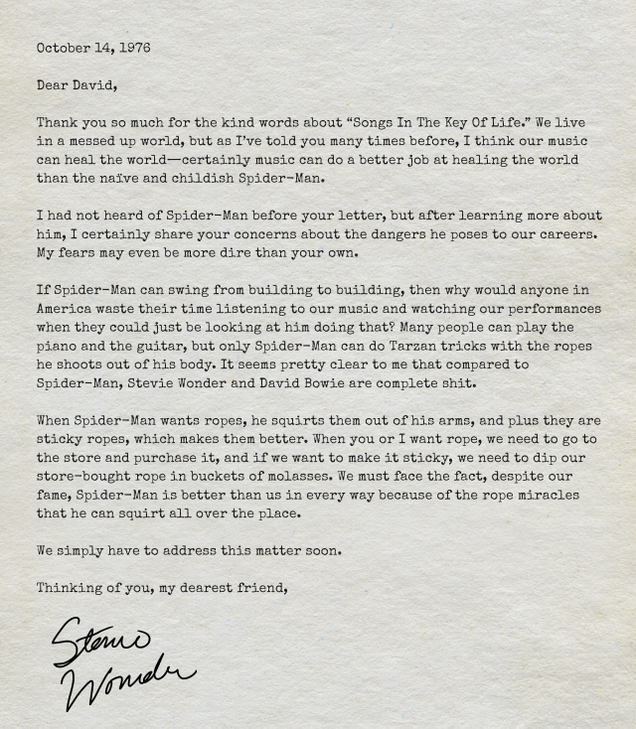 October 14, 1976
Dear David,
Thank you so much for the kind words about “Songs In The Key Of Life.” We live
in a messed up world, but as I’ve told you many times before, I think our music
can heal the world—certainly music can do a better job at healing the world
than the naïve and childish Spider-Man.
I had not heard of Spider-Man before your letter, but after learning more about
him, I certainly share your concerns about the dangers he poses to our careers.
My fears may even be more dire than your own.
If Spider-Man can swing from building to building, then why would anyone in
America waste their time listening to our music and watching our performances
when they could just be looking at him doing that? Many people can play the
piano and the guitar, but only Spider-Man can do Tarzan tricks with the ropes
he shoots out of his body. It seems pretty clear to me that compared to
Spider-Man, Stevie Wonder and David Bowie are complete shit.
When Spider-Man wants ropes, he squirts them out of his arms, and plus they are
sticky ropes, which makes them better. When you or I want rope, we need to go to
the store and purchase it, and if we want to make it sticky, we need to dip our
store-bought rope in buckets of molasses. We must face the fact, despite our
fame, Spider-Man is better than us in every way because of the rope miracles
that he can squirt all over the place.
We simply have to address this matter soon.
Thinking of you, my dearest friend,
Stevie
Wonder